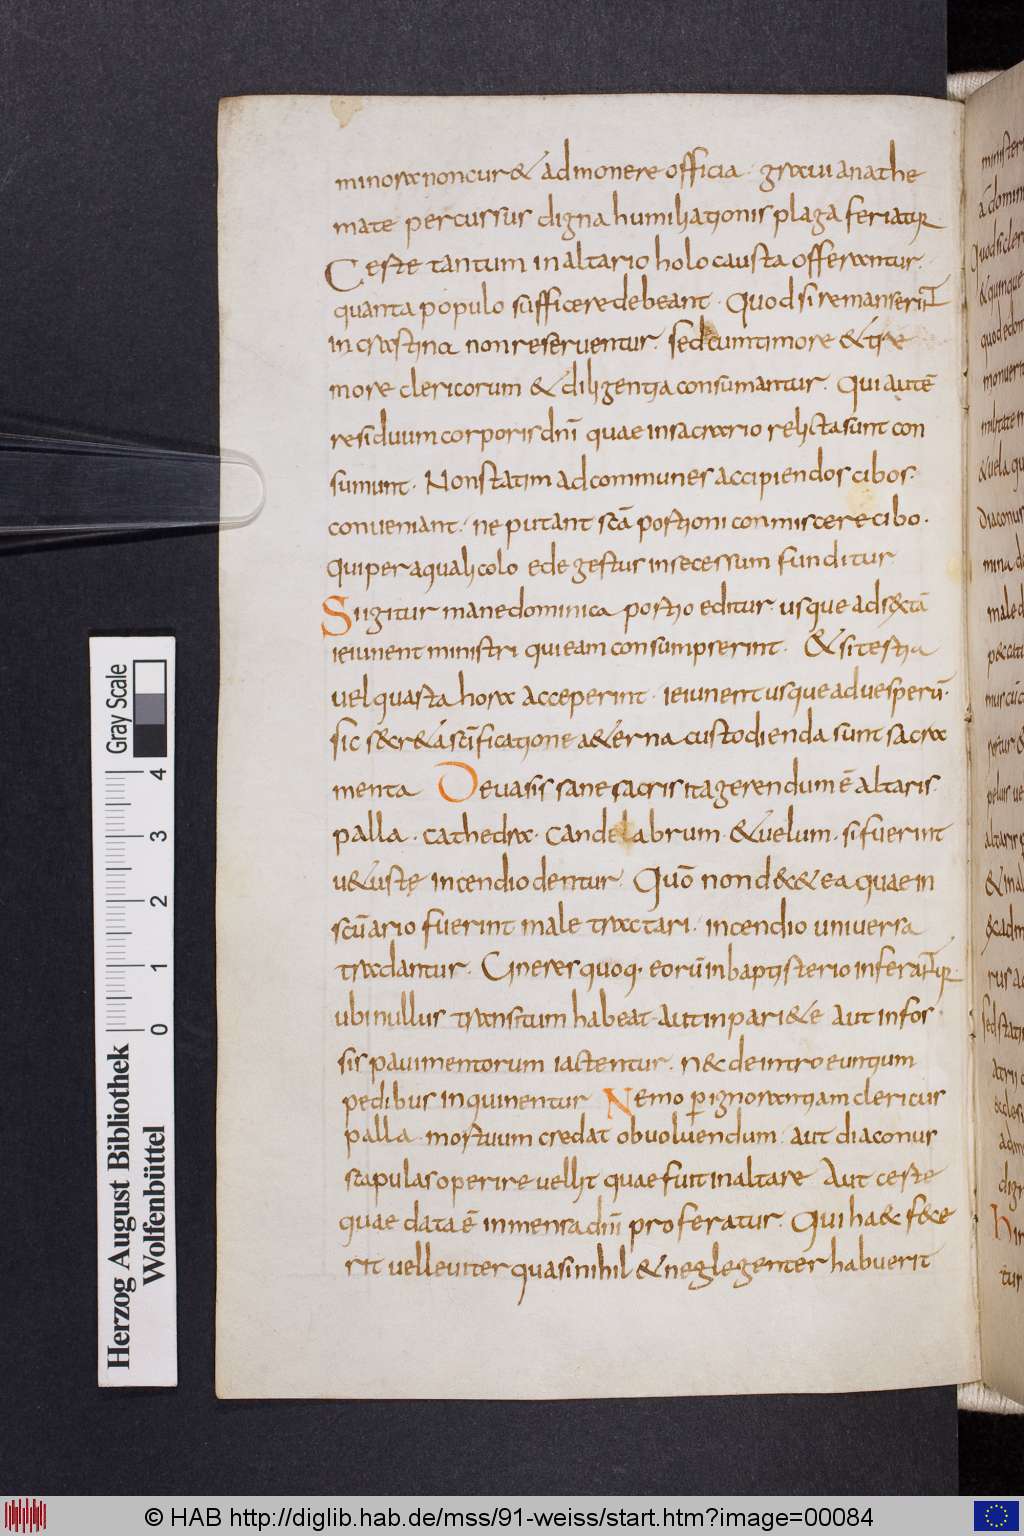 minora non cur& admonere officia · graui anathe
mate percussus digna humiliationis plaga feriatur.
Certe tantum in altario holocausta offerantur.
quanta populo sufficere debeant · Quod si remanserint
in crastina non reseruentur. sed cum timore & tre
more clericorum & diligentia consumantur. Qui autē
residuum corporis dnī quae in sacrario relicta sunt con
sumunt · Non statim ad communes accipiendos cibos.
conueniant. ne putant scā portioni conmiscere cibo.
Qui per aqualicolo edegestus in secessum funditur
Si igitur mane dominica portio editur usque ad s&tā
ieiunent ministri qui eam consumpserint · & si tertia
uel quarta hora acceperint · ieiunent usque ad uesperū·
sic secr&a scīficatione a&erna custodienda sunt sacra
menta De uasis sane sacris ita gerendum ē altaris·
palla · cathedra · candelabrum · & uelum · si fuerint
u&uste incendio dentur. Quō non dec& ea quae in
scūario fuerint male tractari. incendio universa
tradantur. Cineres quoq; eorū in baptisterio inferantur.
ubi nullus transitum habeat · aut in pari&e aut in fos
sis pauimentorum iactentur. nec de introeuntium
pedibus inquinentur Nemo p ignorantiam clericus
palla · mortuum credat obuoluendum · aut diaconus
scapulas operire uellit quae fuit in altare Aut certe
quae data ē in mensa dnī proferatur. Qui haec fece
rit uel leuiter quasi nihil & neglegenter habuerit
Gray Scale
0 1 2 3 4
Herzog August Bibliothek
Wolfenbüttel
© HAB http://diglib.hab.de/mss/91-weiss/start.htm?image=00084